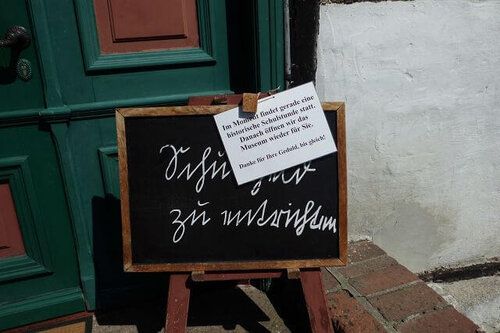 Im Moment findet gerade eine
historische Schulstunde statt.
Danach öffnen wir das
Museum wieder für Sie.
Danke für Ihre Geduld, bis gleich!
zu entrichten